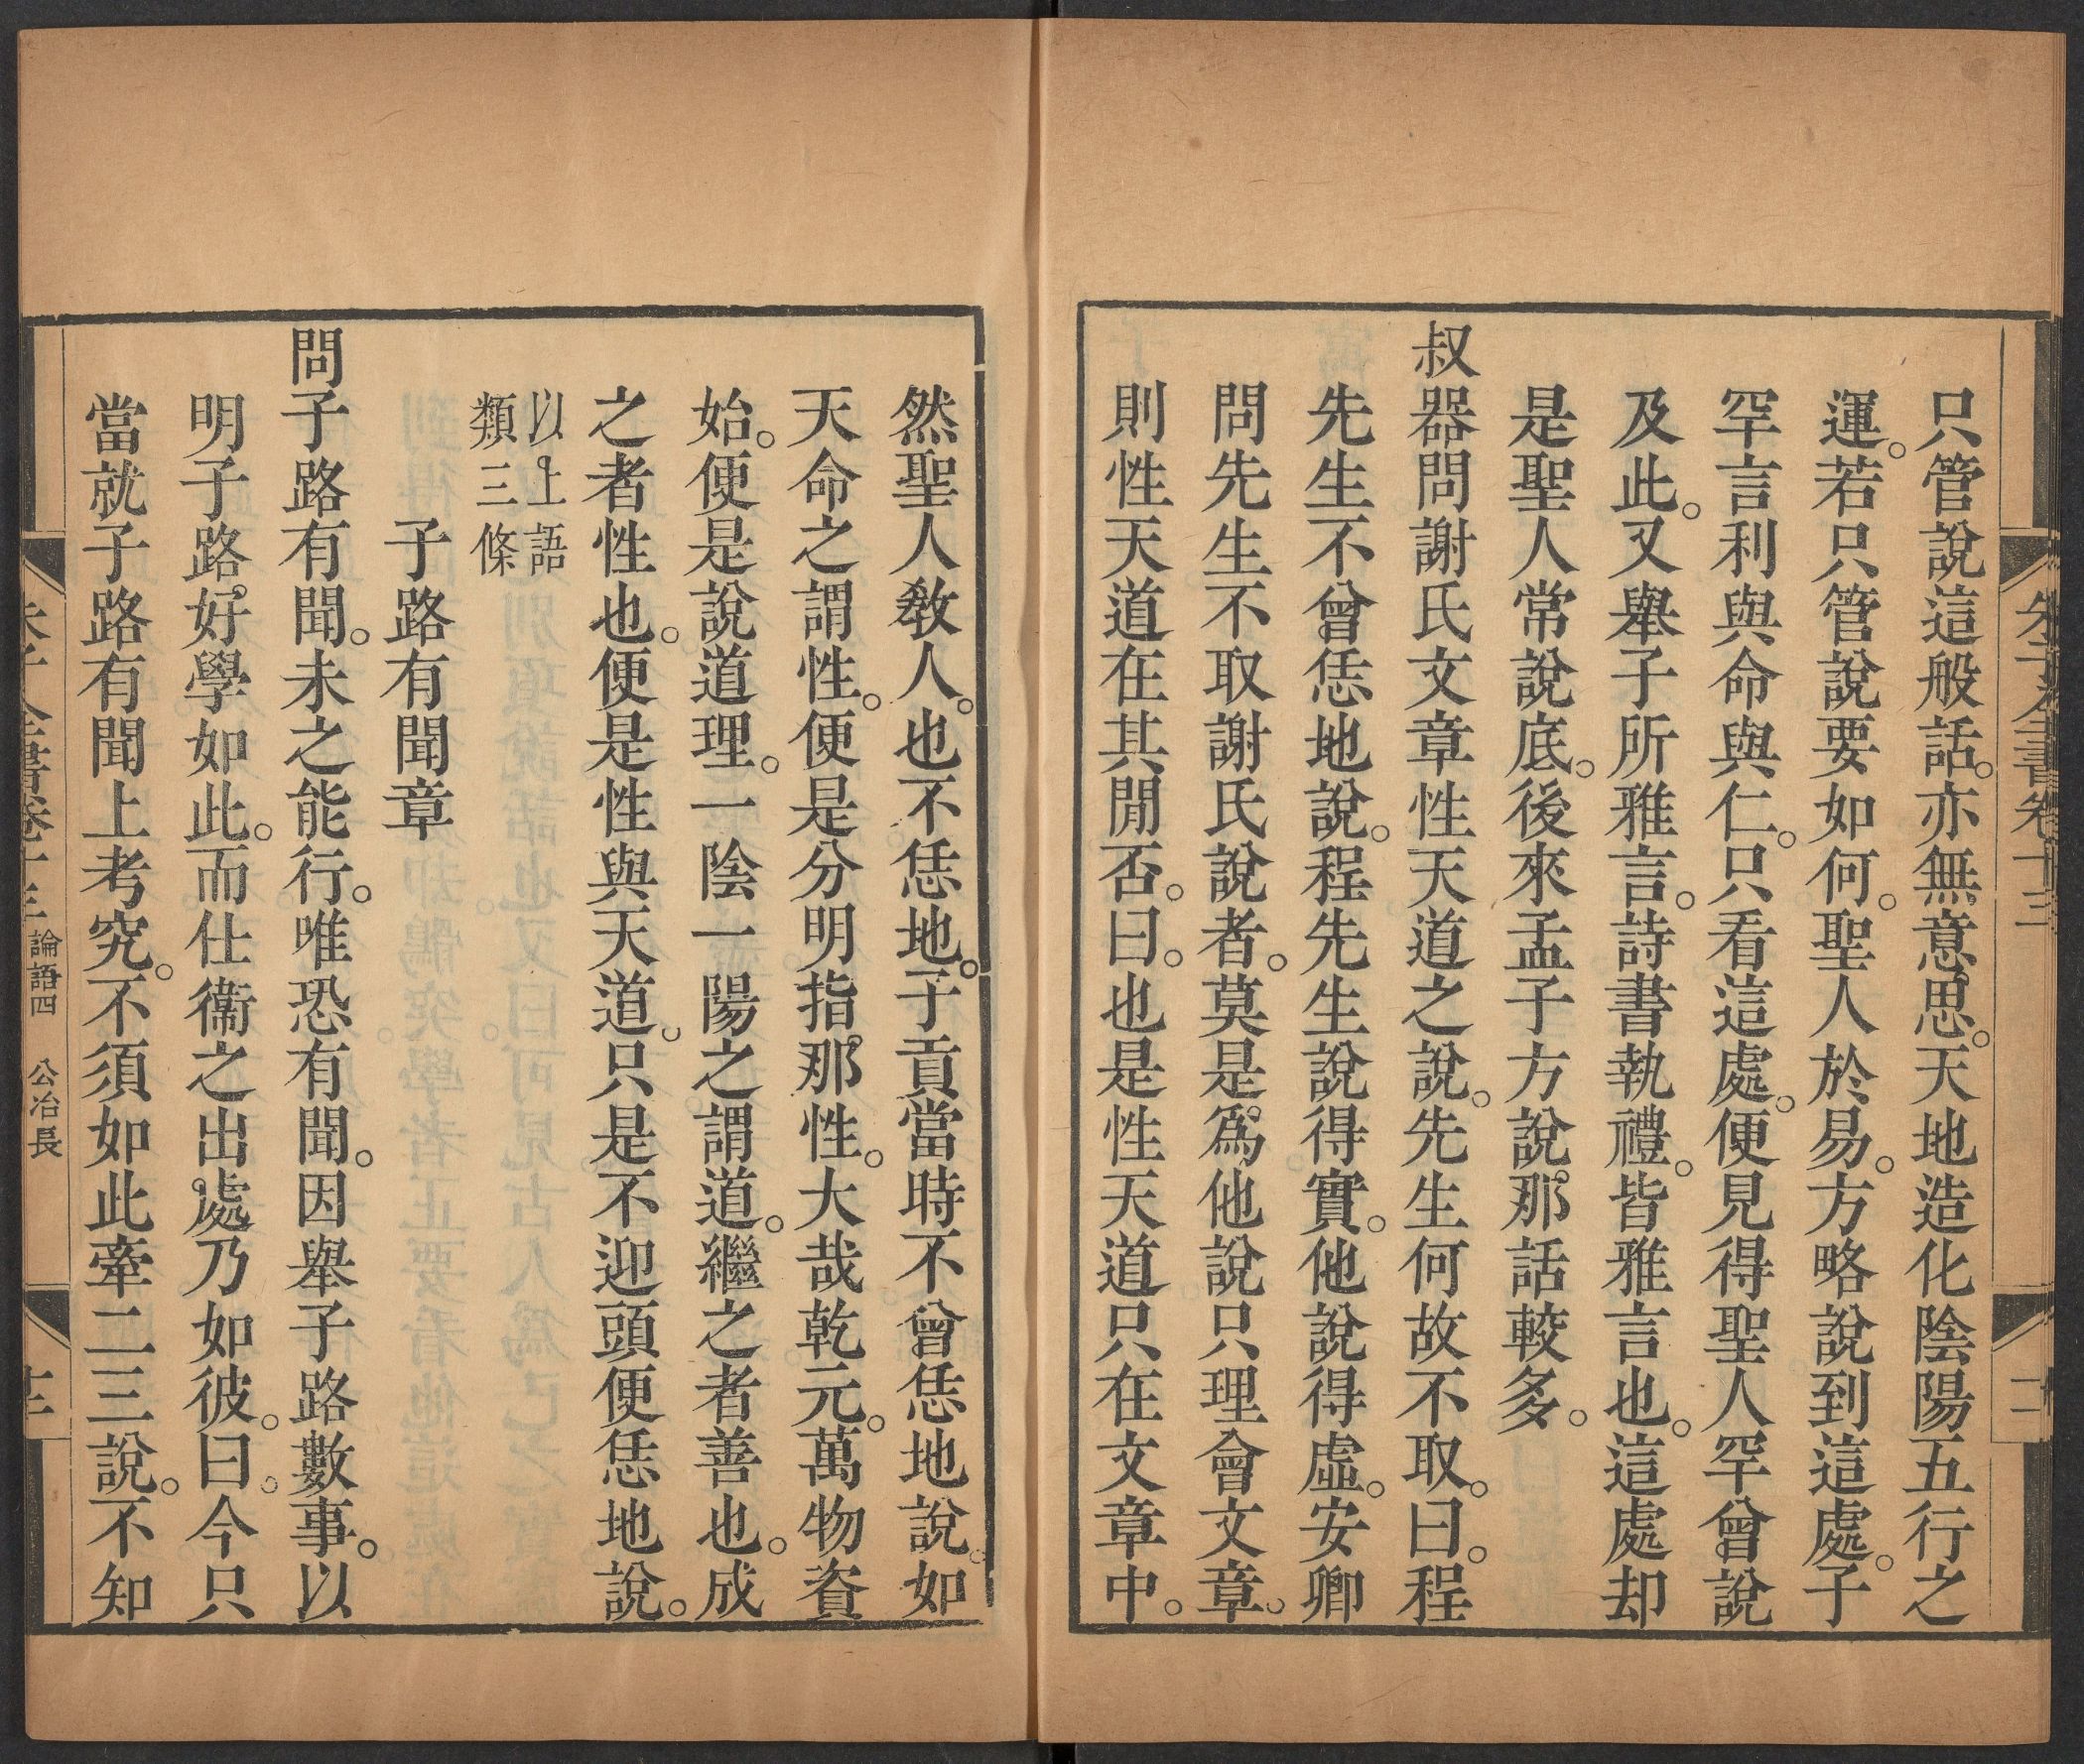 只管說這般話。亦無意思。天地造化陰陽五行之
運。若只管說要如何。聖人於易。方略說到這處。子
罕言利與命與仁。只看這處。便見得聖人罕曾說
及此。又舉子所雅言。詩書執禮。皆雅言也。這處却
是聖人常說底。後來孟子方說那話較多。
叔器問謝氏文章性天道之說。先生何故不取。曰。程
先生不曾恁地說。程先生說得實。他說得虛。安卿
問先生不取謝氏說者。莫是爲他說只理會文章。
則性天道在其閒否。曰。也是性天道只在文章中。
然聖人敎人。也不恁地。子貢當時不曾恁地說。如
天命之謂性。便是分明指那性。大哉乾元。萬物資
始。便是說道理。一陰一陽之謂道。繼之者善也。成
之者性也。便是性與天道。只是不迎頭便恁地說。
以上語
類三條
子路有聞章
問子路有聞。未之能行。唯恐有聞。因舉子路數事。以
明子路好學如此。而仕衞之出處乃如彼。曰。今只
當就子路有聞上考究。不須如此牽二三說。不知
朱子全書卷十三 論語四 公冶長